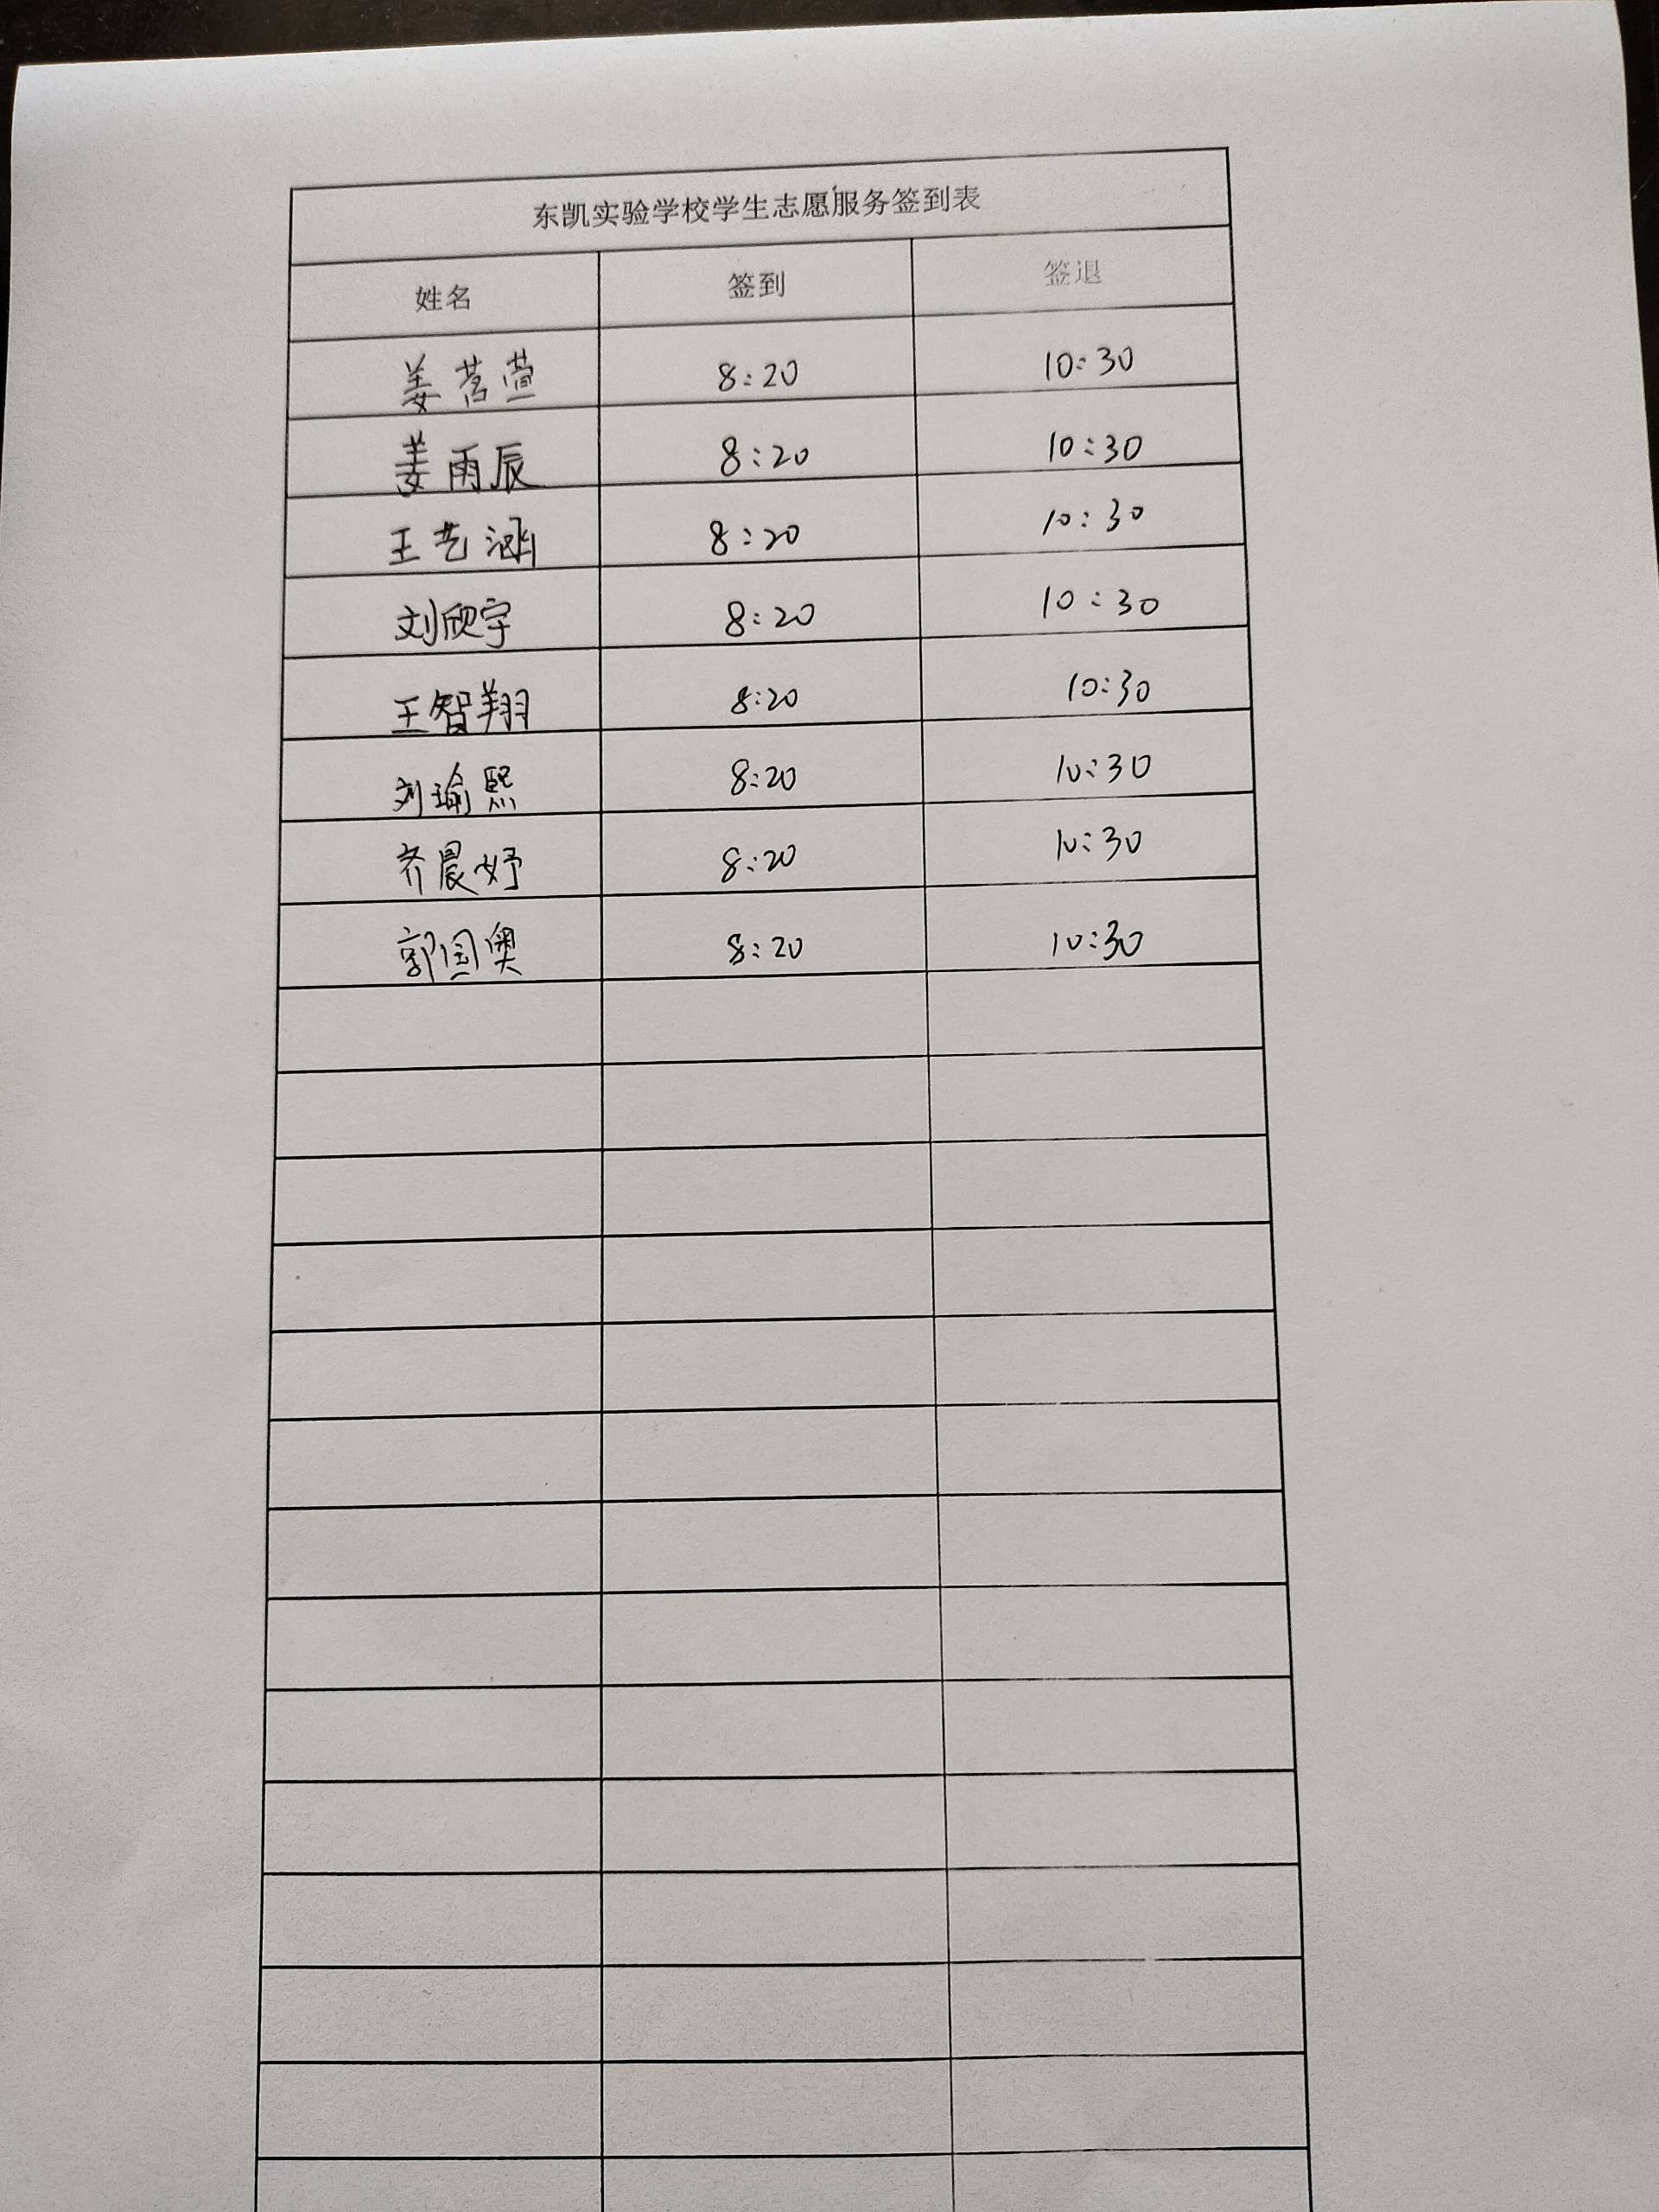 东凯实验学校学生志愿服务签到表
姓名 签到 签退
姜茗萱 8:20 10:30
姜雨辰 8:20 10:30
王艺涵 8:20 10:30
刘欣宇 8:20 10:30
王智翔 8:20 10:30
刘瑜熙 8:20 10:30
齐晨妤 8:20 10:30
郭国奥 8:20 10:30